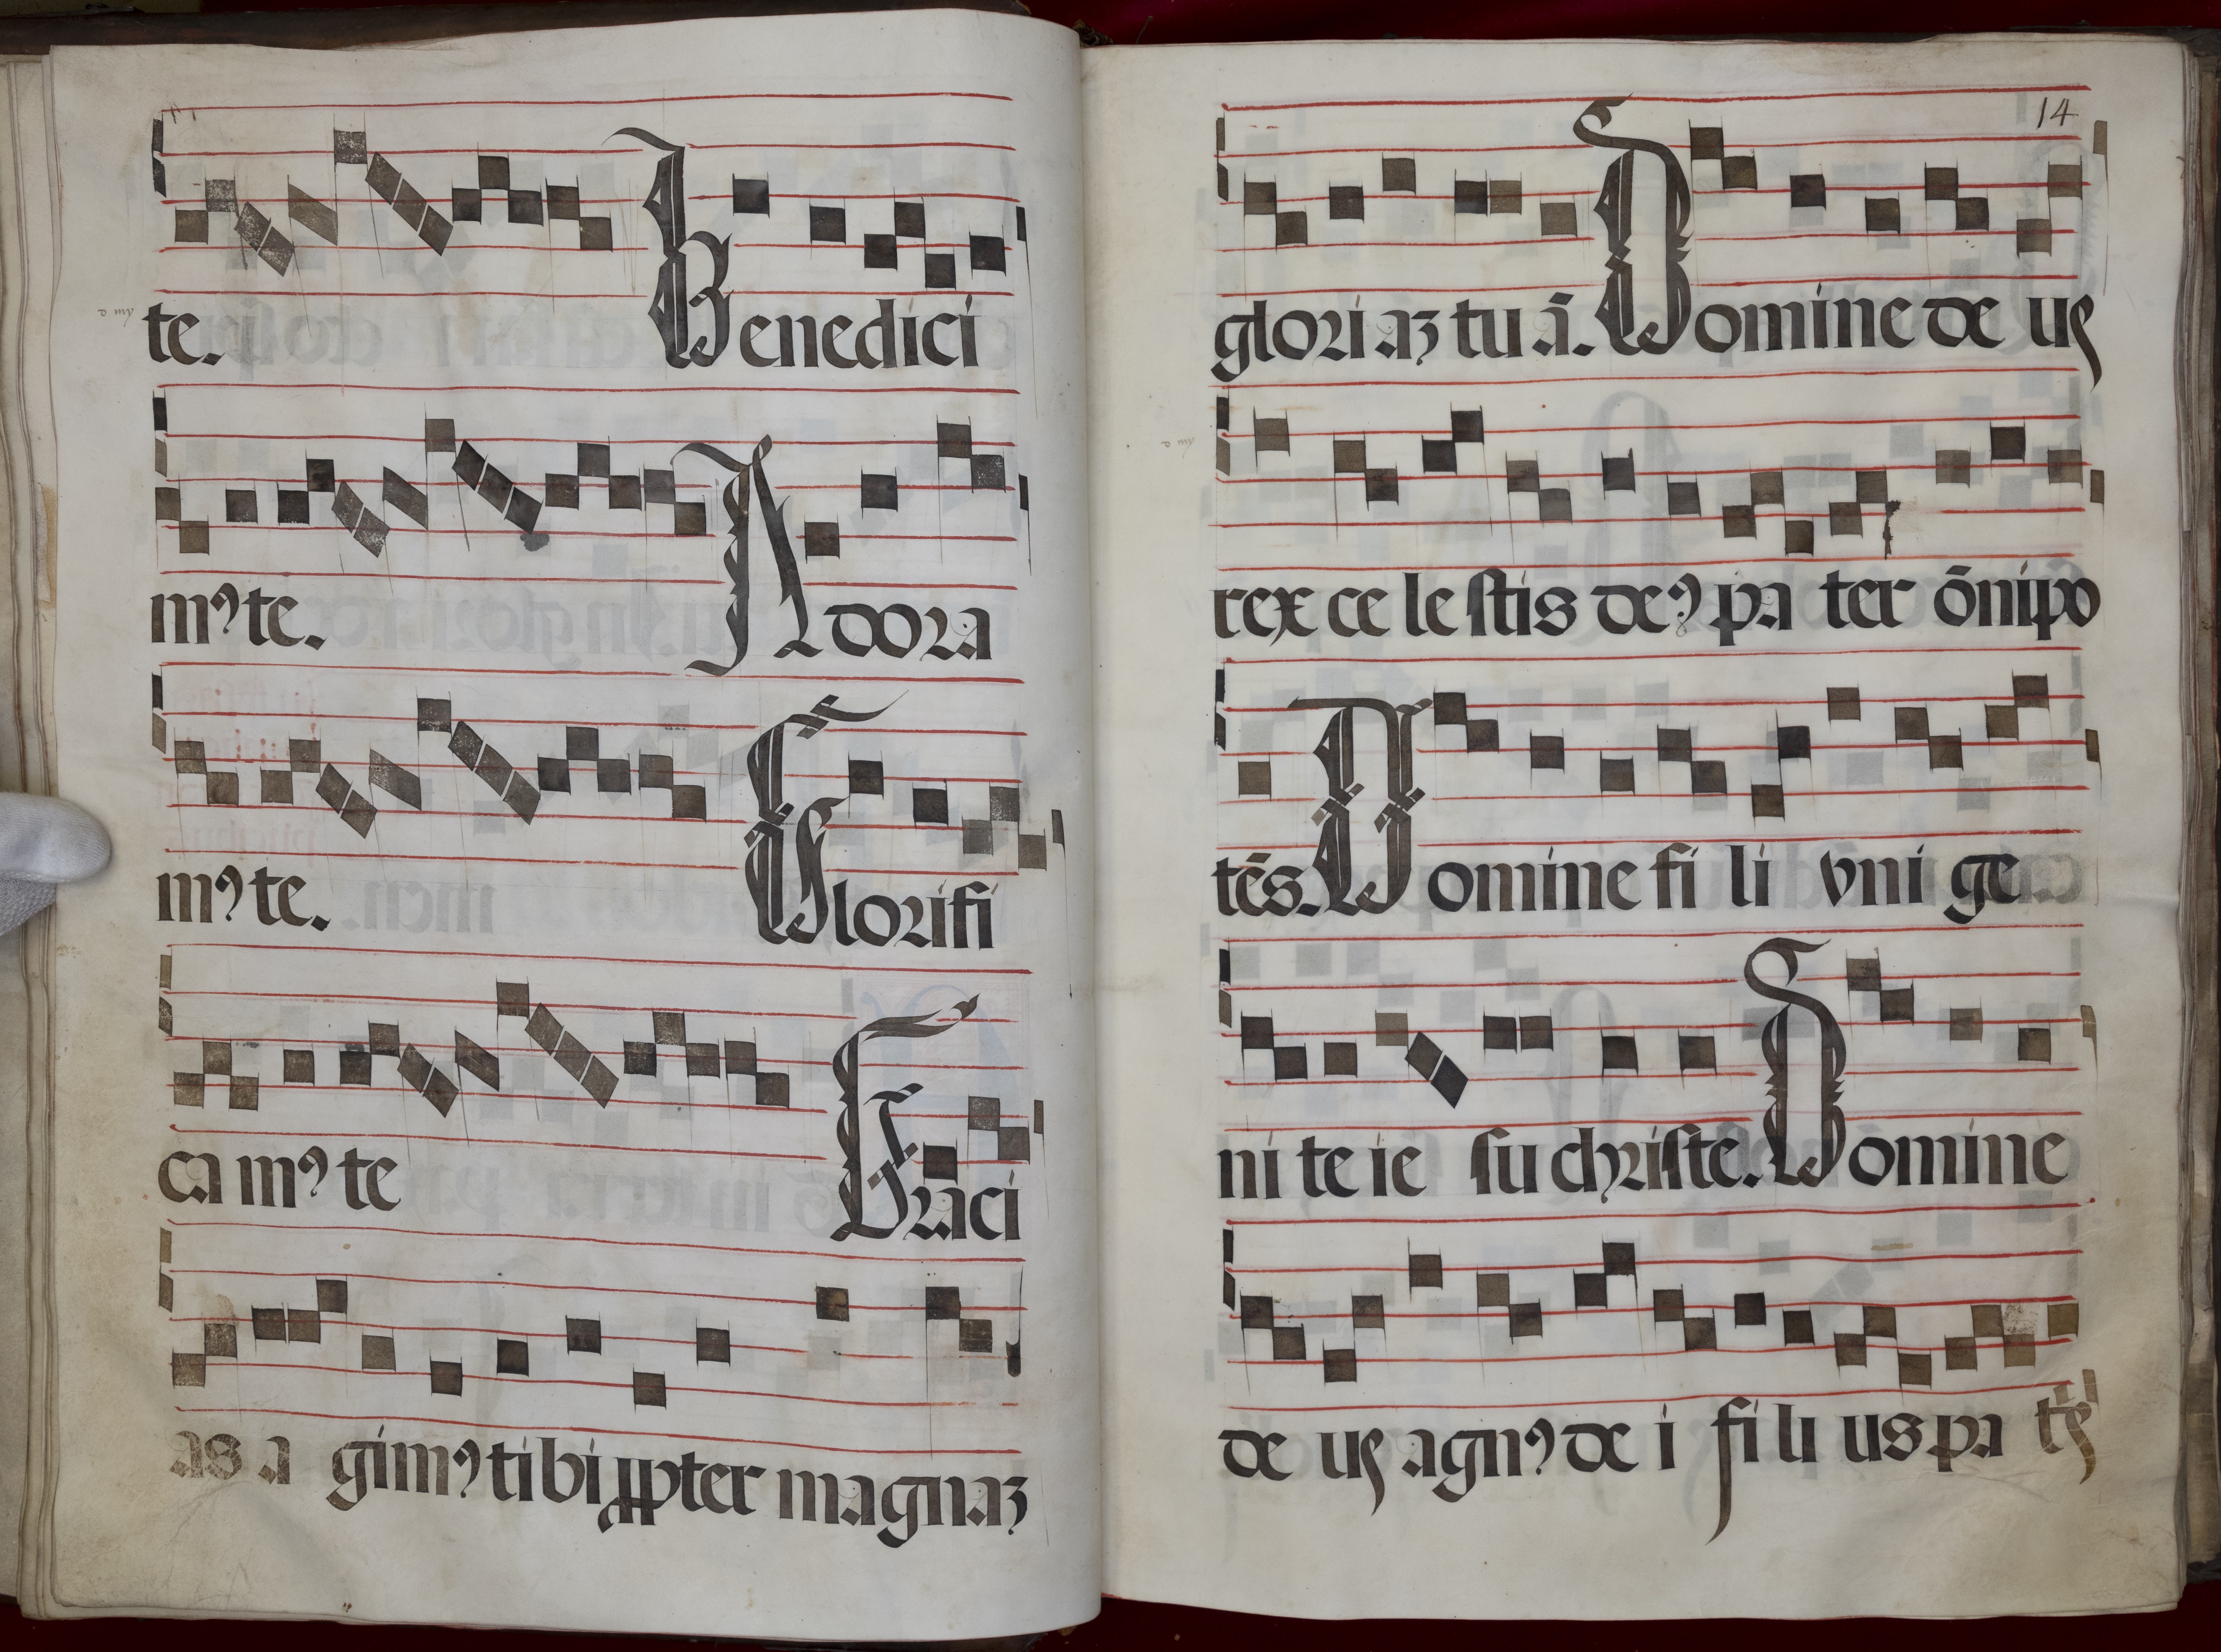 te. Benedici
mꝰ te. Adora
mꝰ te. Glorifi
ca mꝰ te Graci
as a gimꝰ tibi ꝓpter magnaꝫ
14
gloriaꝫ tuā. Domine de us
rex ce le stis deꝰ pa ter ōnipo
tēs. Domine fi li vni ge
ni te ie su christe. Domine
de us agnꝰ de i fi li us pa